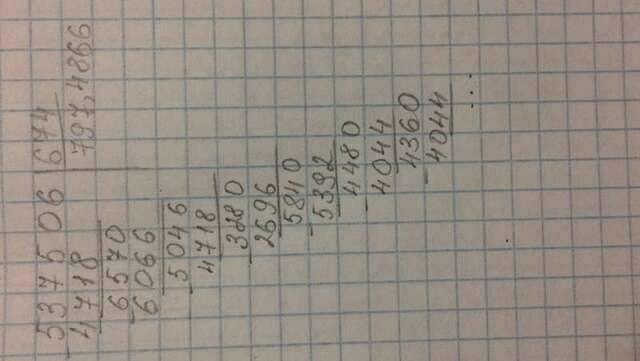 - 537506 | 674
4718 | 797,4866
- 6570
6066
- 5046
4718
- 3280
2696
- 5840
5392
- 4480
4044
- 4360
4044
...